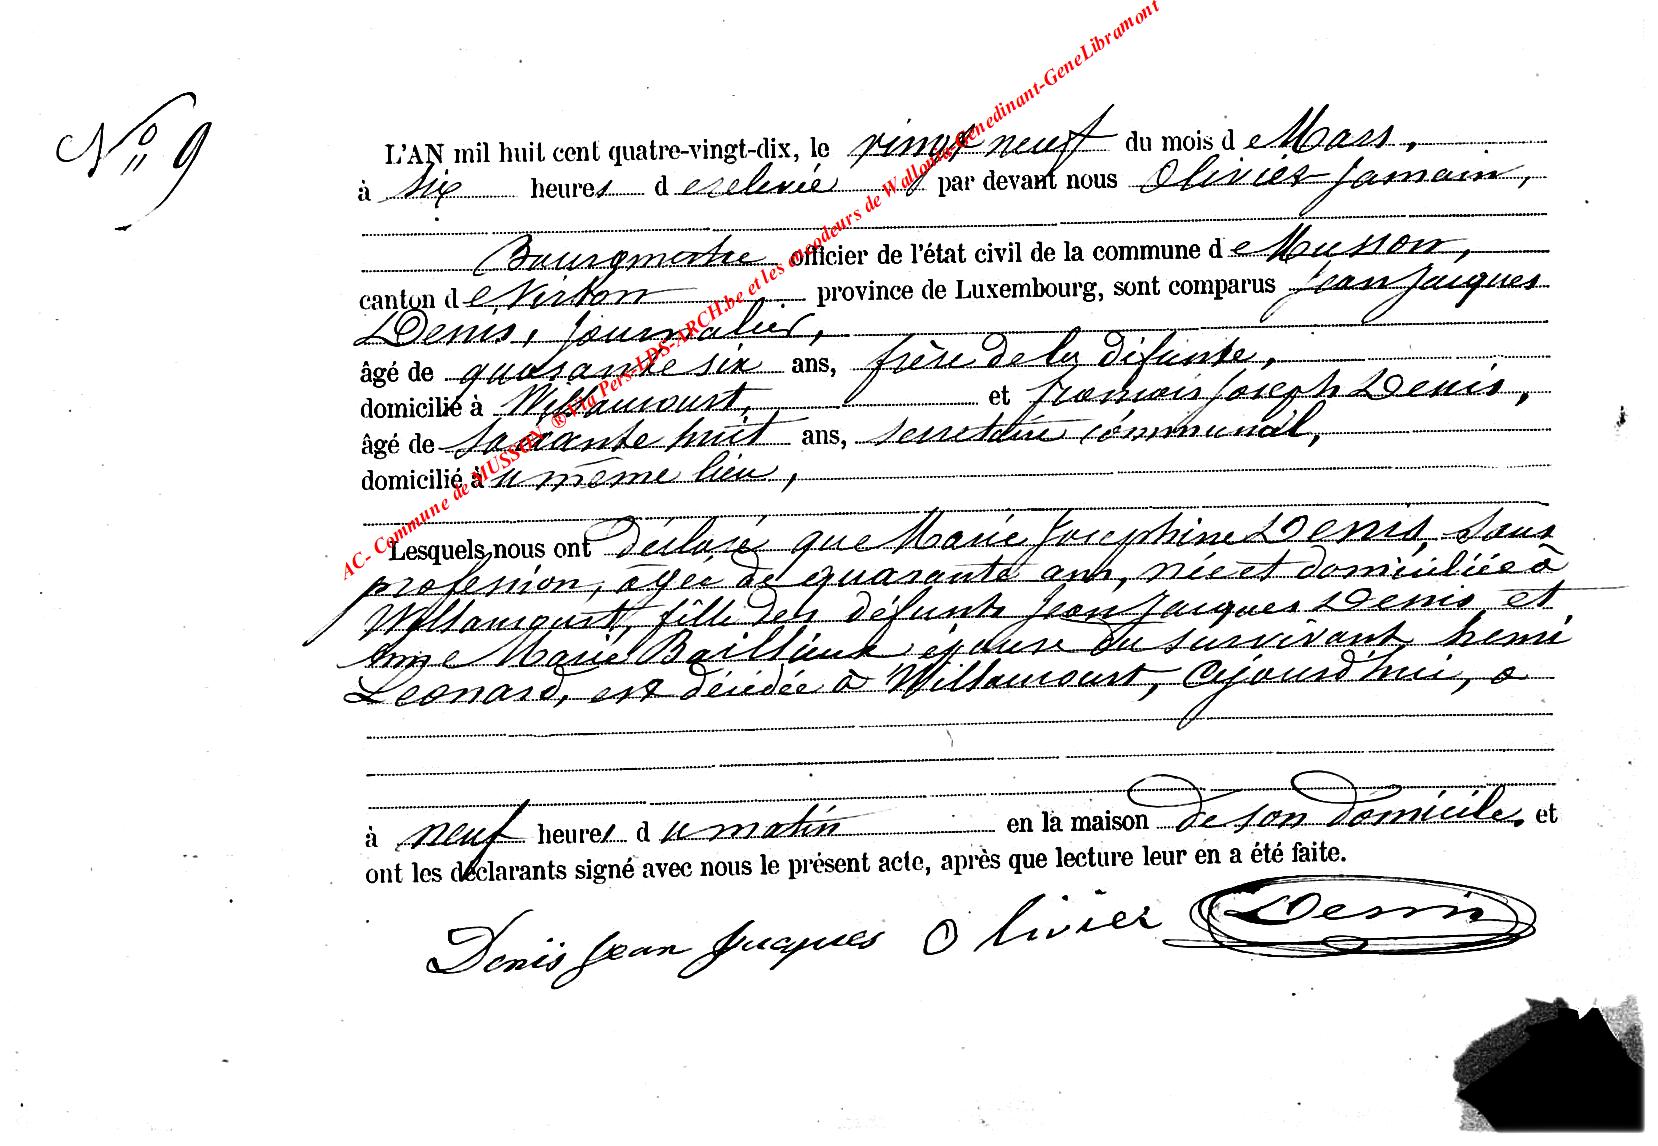 N° 9
L'AN mil huit cent quatre-vingt-dix, le vingt neuf du mois de Mars,
à six heures de relevée par devant nous Olivier Jamain,
Bourgmestre officier de l'état civil de la commune de Musson,
canton de Virton province de Luxembourg, sont comparus Jean Jacques
Denis, journalier,
âgé de quarante six ans, frère de la défunte,
domicilié à Willancourt, et françois Joseph Denis,
âgé de soixante huit ans, secrétaire communal,
domicilié au même lieu,
Lesquels nous ont déclaré que Marie Josephine Denis, sans
profession, âgée de quarante ans, née et domiciliée à
Willancourt, fille des défunts Jean Jacques Denis et
Anne Marie Baillieux épouse du survivant henri
Léonard, est décédée à Willancourt, Aujourd'hui, a
à neuf heures du matin en la maison de son domicile. et
ont les déclarants signé avec nous le présent acte, après que lecture leur en a été faite.
Denis Jean Jacques Olivier Denis
AC- Commune de MUSSON ®Via Pers-LDS-ARCH.be et les encodeurs de Wallonia-Genedinant-GeneLibramont